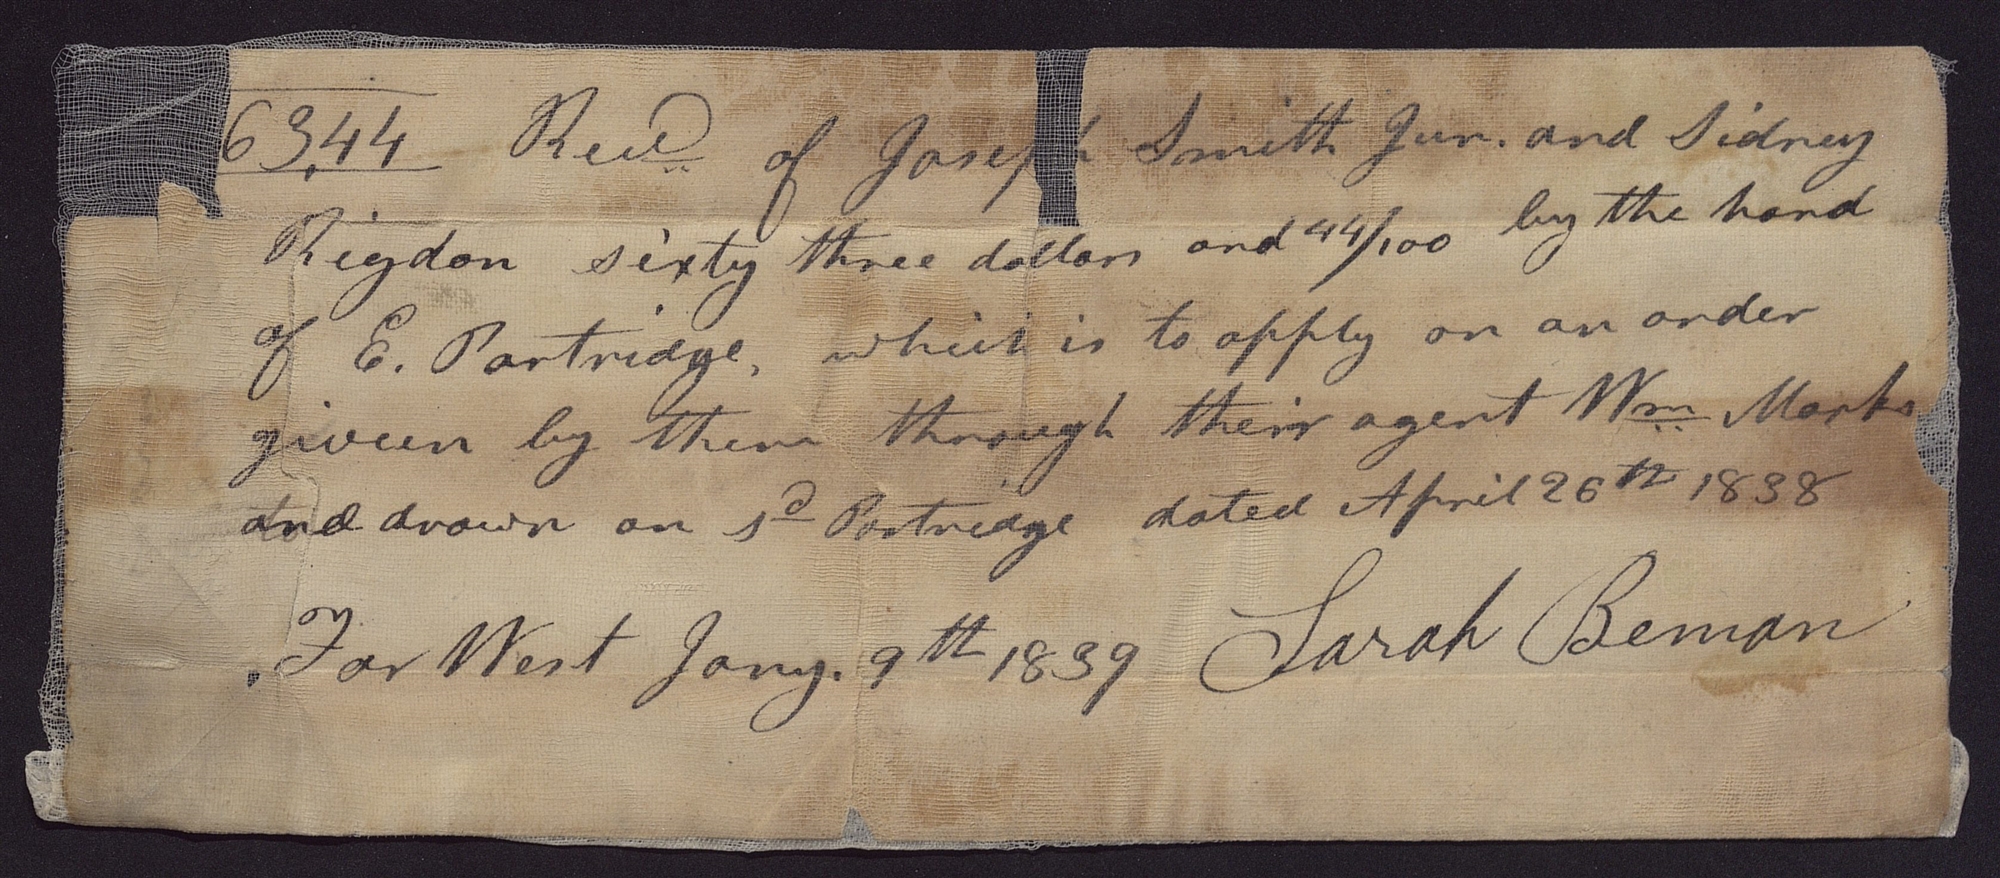 63,44 Recd of Joseph Smith Jun. and Sidney
Rigdon sixty three dollars and 44/100 by the hand
of E. Partridge, which is to apply on an order
given by them through their agent Wm Marks
and drawn on sd Partridge dated April 26th 1838
Far West Jany. 9th 1839 Sarah Beman